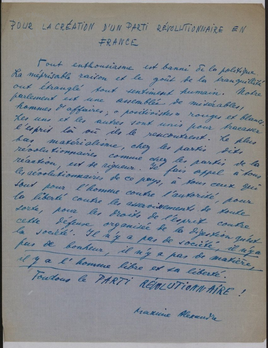 POUR LA CRÉATION D'UN PARTI RÉVOLUTIONNAIRE EN
FRANCE
Tout enthousiasme est banni de la politique.
La méprisable raison et le goût de la tranquillité
ont étranglé tout sentiment humain. Notre
parlement est une assemblée de misérables,
hommes d'affaires, positivistes rouges et blancs.
Les uns et les autres sont unis pour
l'esprit là où ils le rencontrent. Le plus
bas matérialisme, chez les partis dits
révolutionnaires comme chez les partis de la
réaction, est de rigueur. Je fais appel à tous
les révolutionnaires de ce pays, à tous ceux qui
sont pour l'homme contre l'autorité, pour
la liberté contre les asservissements de toute
sorte, pour les Droits de l'esprit contre
cette défense organisée de la digestion qu'est
la société. Il n'y a pas de société, il n'y a
pas de bonheur, il n'y a pas de matière,
il y a l'homme libre et sa liberté.
Fondons le PARTI RÉVOLUTIONNAIRE !
Maxime Alexandre